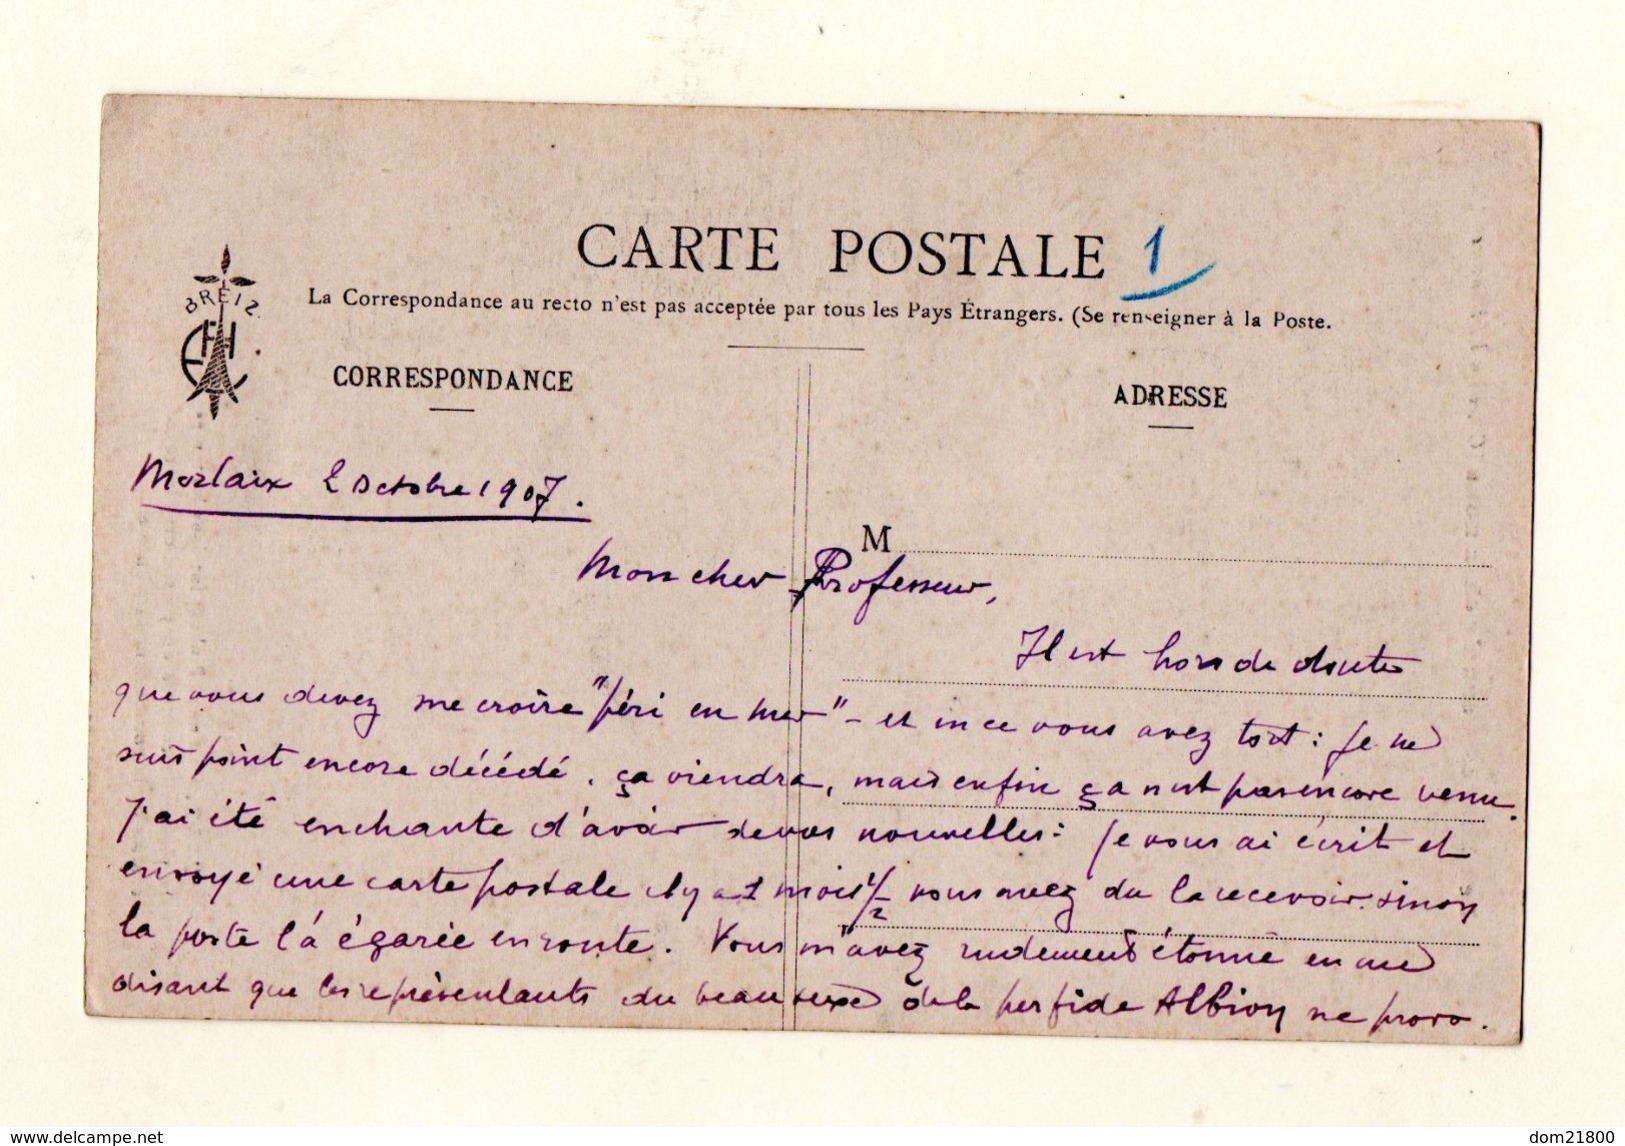 CARTE POSTALE 1
La Correspondance au recto n'est pas acceptée par tous les Pays Étrangers. (Se renseigner à la Poste.
BREIZ
EHC
CORRESPONDANCE
ADRESSE
Morlaix 2 Octobre 1907.
M
Mon cher Professeur,
Il est hors de doute
que vous devez me croire "péri en mer" - et en ce vous avez tort : je ne
suis point encore décédé. ça viendra, mais enfin ça n'est pas encore venu.
J'ai été enchanté d'avoir de vos nouvelles : je vous ai écrit et
envoyé une carte postale il y a 1 mois 1/2 vous avez du la recevoir. sinon
la poste l'a égarée en route. Vous m'avez rudement étonné en me
disant que les représentants du beau sexe de la perfide Albion ne provo.
www.delcampe.net
dom21800